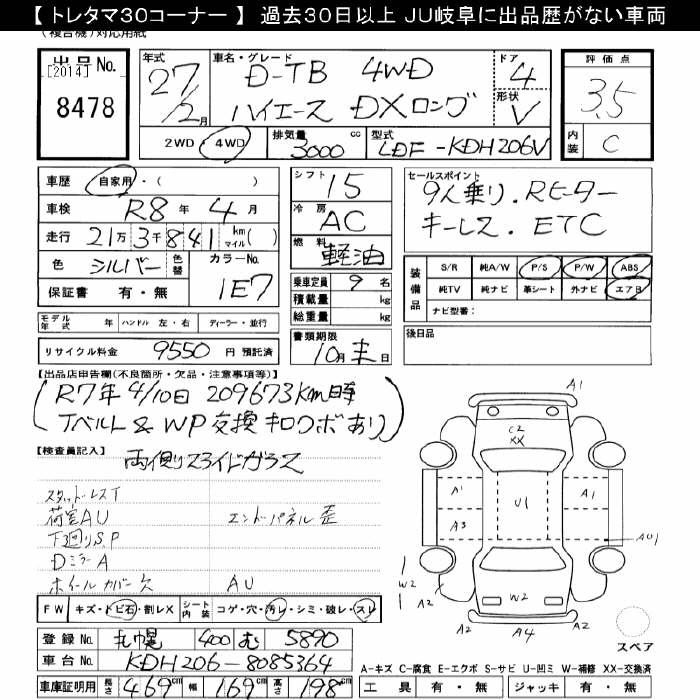 【 トレタマ30コーナー 】 過去30日以上 JU岐阜に出品歴がない車両
(複合機)対応用紙
出品No.
[2014]
8478
年式 27/2月
車名・グレード D-TB 4WD
ハイエース DXロング
ドア 4
形状 V
評価点 3.5
内装 C
2WD・4WD
排気量 3000 cc
型式 LDF-KDH206V
車歴 自家用・( )
車検 R8年 4月
走行 21万3千841 km マイル( )
色 シルバー 色替
カラーNo. 1E7
保証書 有・無
モデル年式 年 ハンドル 左・右 ディーラー・並行
リサイクル料金 9550円 預託済
シフト I5
冷房 AC
燃料 軽油
乗車定員 9名
積載量 kg
総重量 kg
書類期限
10月末日
セールスポイント
9人乗り.Rヒーター
キーレス. ETC
装備品
S/R 純A/W P/S P/W ABS
純TV 純ナビ 革シート 外ナビ エアB
ナビ型番:
後日品
【出品店申告欄(不良箇所・欠品・注意事項等)】
(R7年4/10日 209673km時
Tベルト&WP交換キロクボあり)
【検査員記入】 両側スライドガラス
スタットレスT
荷室AU エンドパネル歪
下廻りS.P
DミラーA
ホイールカバー欠 AU
FW キズ・トビ石・割レX シート内装 コゲ・穴・汚レ・シミ・破レ・スレ
登録No. 札幌 400 む 5890
車台No. KDH206-8085364
車庫証明用 長さ 469cm 幅 169cm 高さ 198cm
A1
C2
XX
A1 U1 A1
A3 AU1
W2 W2
A2 A4 A2
スペア
A-キズ C-腐食 E-エクボ S-サビ U-凹ミ W-補修 XX-交換済
工具 有・無 ジャッキ 有・無